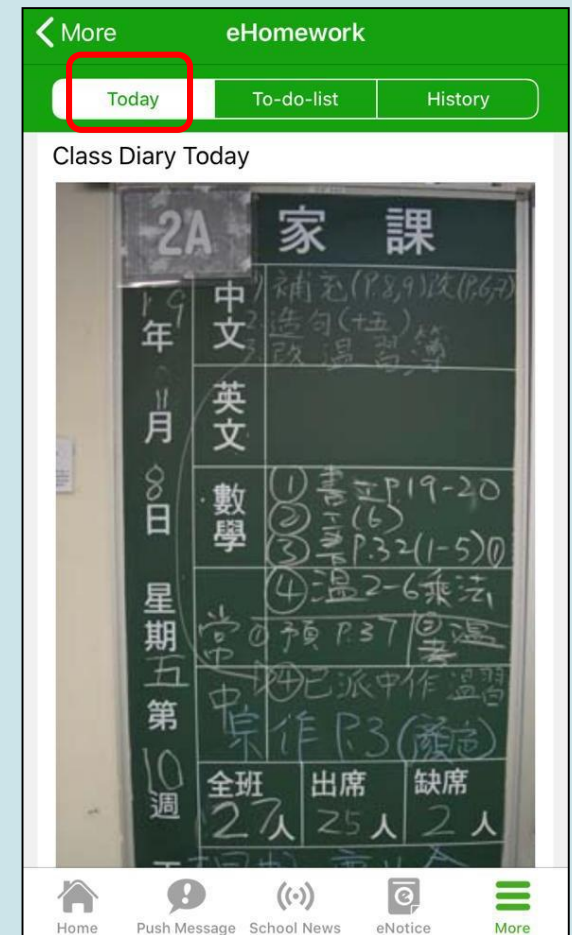 More
eHomework
Today
To-do-list
History
Class Diary Today
2A 家課
19年11月8日 星期五 第10週
中文
1) 補充(P.8,9)改(P.6,7)
2. 造句(十五)
3. 改溫習簿
英文
數學
① 書 P.19-20
② (6)
③ P.32(1-5)①
④ 溫2-6乘法
常 ① 預 P.37 ② 溫
中 ④ 已派中作 溫習
作 P.3
全班 27人
出席 25人
缺席 2人
Home
Push Message
School News
eNotice
More